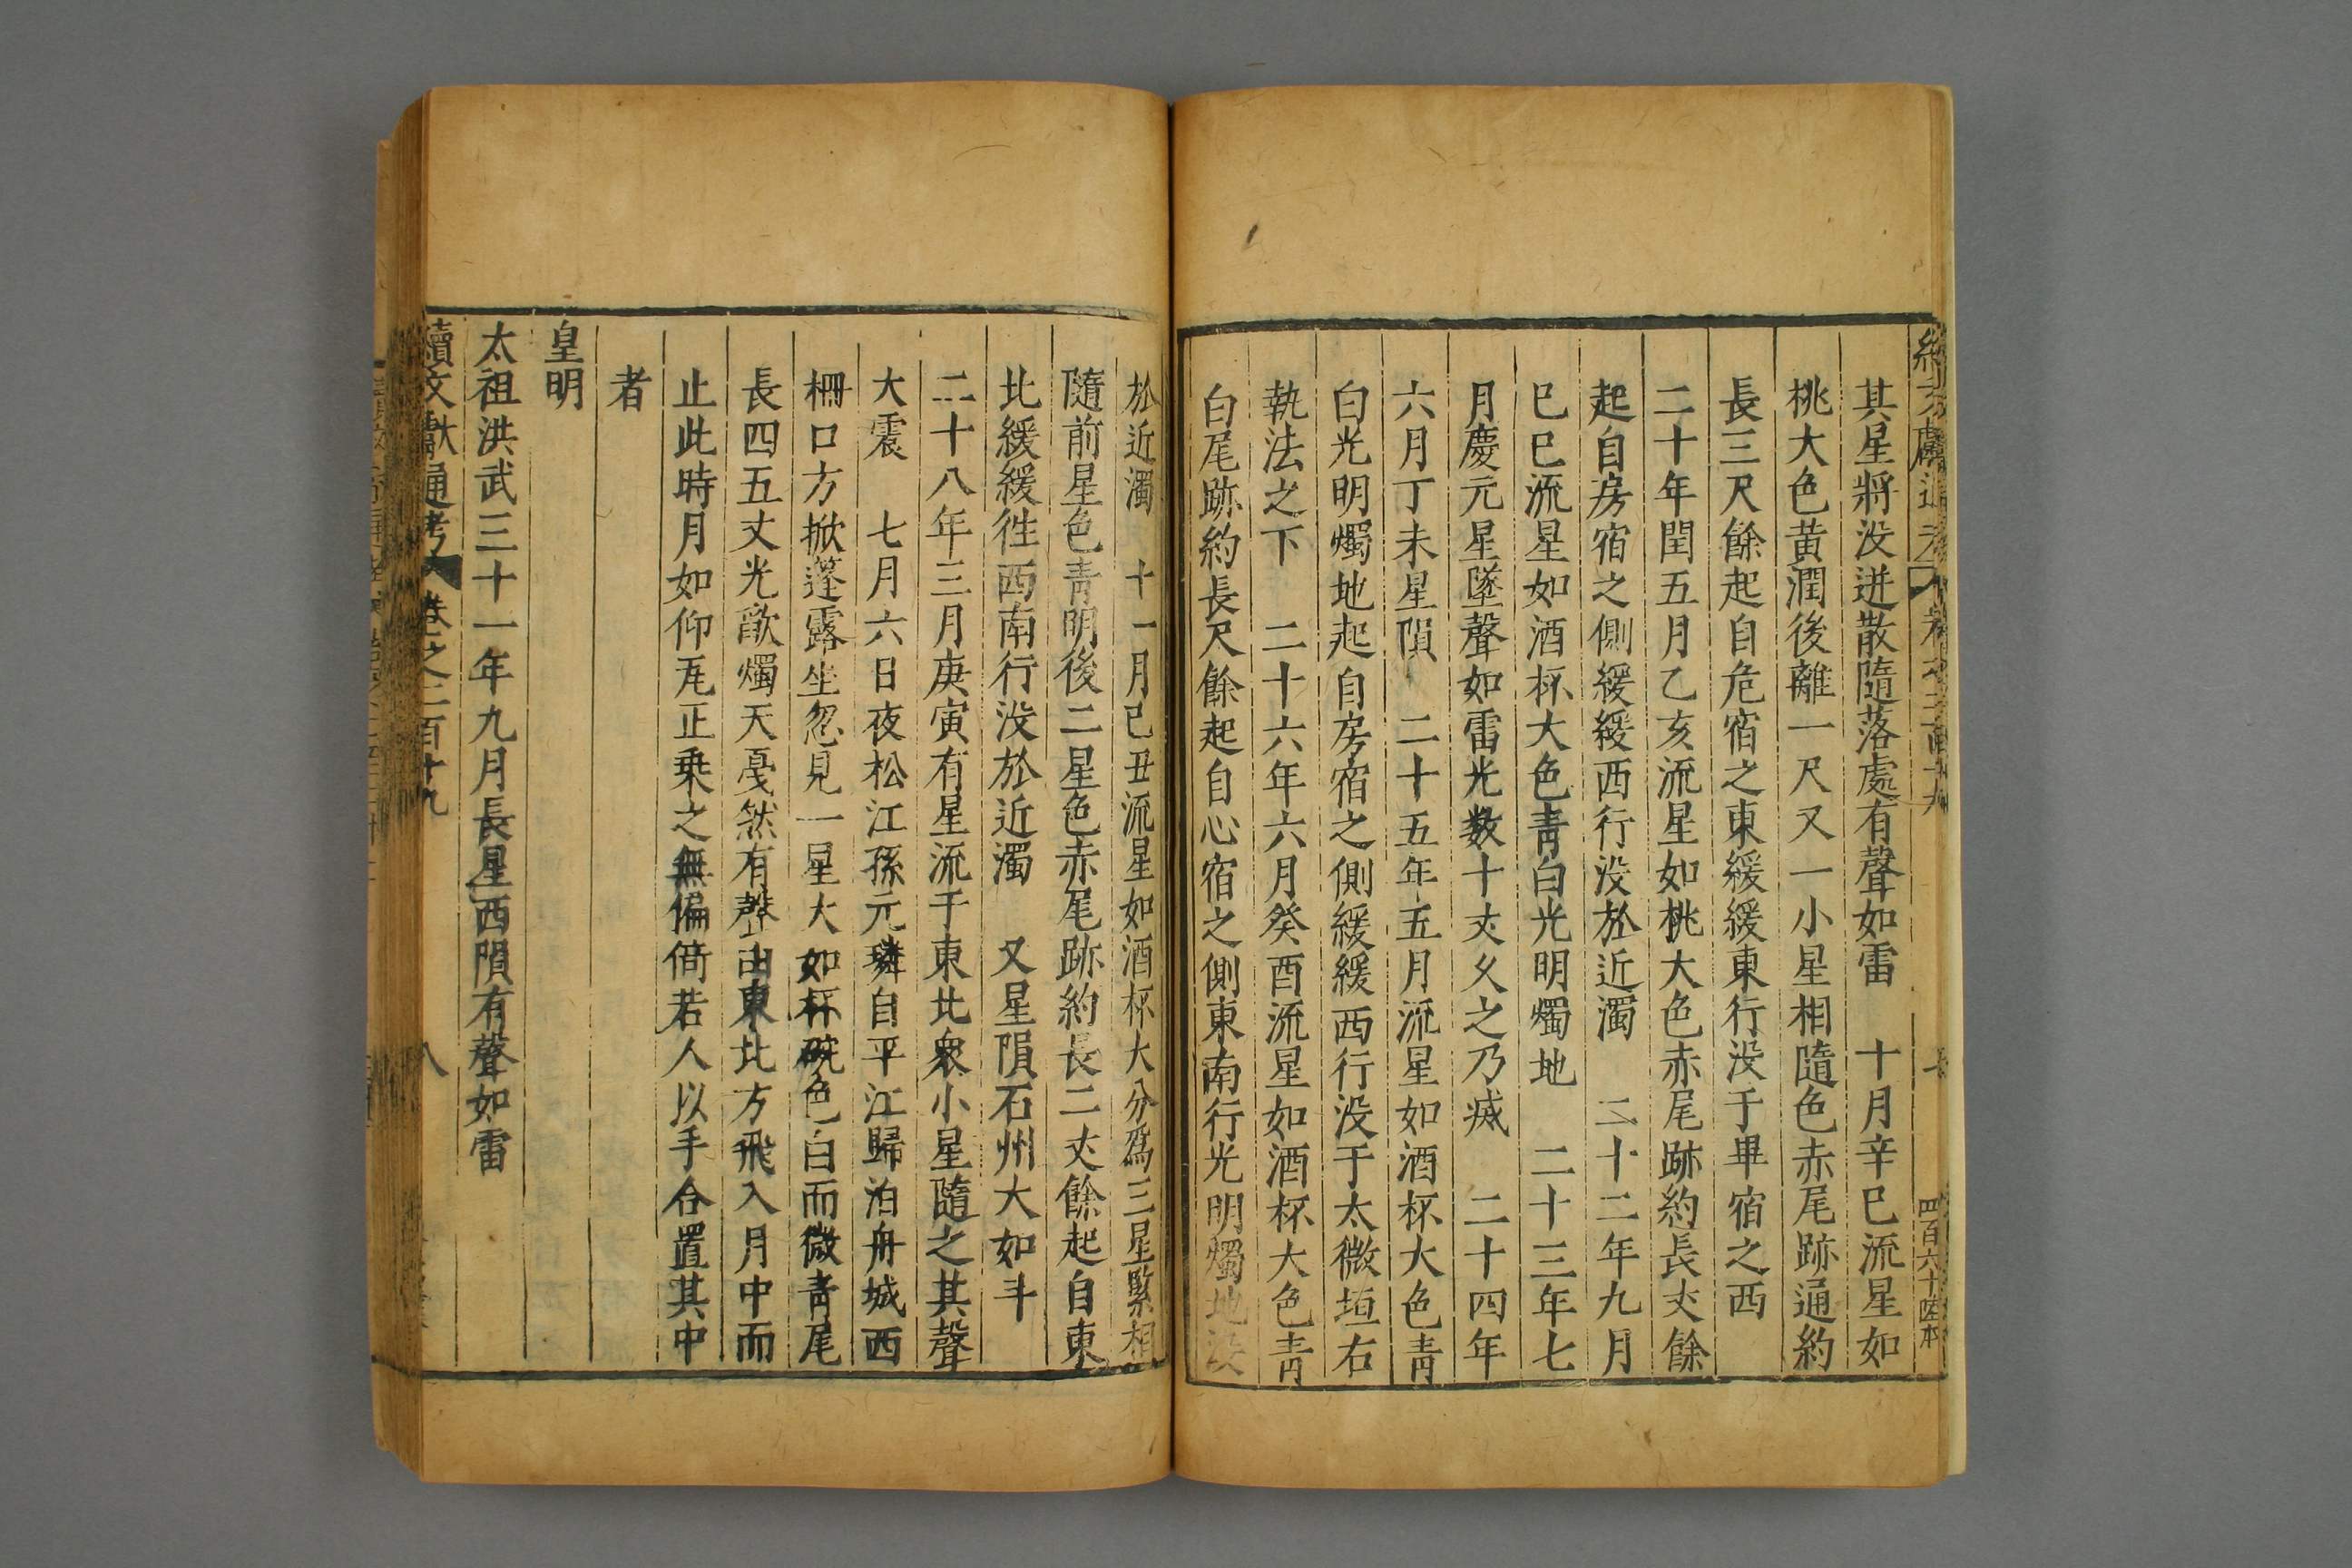 其星將没迸散隨落處有聲如雷　十月辛巳流星如
桃大色黄潤後離一尺又一小星相隨色赤尾跡通約
長三尺餘起自危宿之東緩緩東行没于畢宿之西
二十年閏五月乙亥流星如桃大色赤尾跡約長丈餘
起自房宿之側緩緩西行没於近濁　二十二年九月
巳巳流星如酒杯大色青白光明燭地　二十三年七
月慶元星墜聲如雷光数十丈乆之乃㓕　二十四年
六月丁未星隕　二十五年五月流星如酒杯大色青
白光明燭地起自房宿之側緩緩西行没于太微垣右
執法之下　二十六年六月癸酉流星如酒杯大色青
白尾跡約長尺餘起自心宿之側東南行光明燭地没
於近濁　十一月己丑流星如酒杯大分爲三星緊相
隨前星色青明後二星色赤尾跡約長二丈餘起自東
北緩緩徃西南行没於近濁　又星隕石州大如斗
二十八年三月庚寅有星流于東北衆小星隨之其聲
大震　七月六日夜松江孫元璘自平江歸泊舟城西
柵口方掀蓬露坐忽見一星大如杯碗色白而微青尾
長四五丈光歊燭天戞然有聲由東北方飛入月中而
止此時月如仰瓦正乗之無偏倚若人以手合置其中
者
皇明
太祖洪武三十一年九月長星西隕有聲如雷
續文獻通考　卷之二百十九　八
四百六十